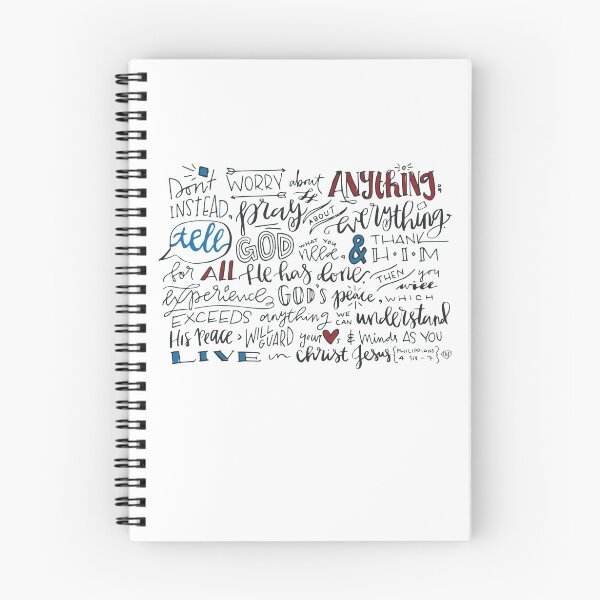 Don't WORRY about ANYthING;
INSTEAD, pray ABOUT everything.
tell GOD WHAT YOU need, & THANK H·I·M
for ALL He has done. THEN you will
experience GOD'S peace, WHICH
EXCEEDS anything WE CAN understand
HIS PEACE WILL GUARD your ♥s & minds AS YOU
LIVE in Christ Jesus {PHILIPPIANS 4 SIX-7}